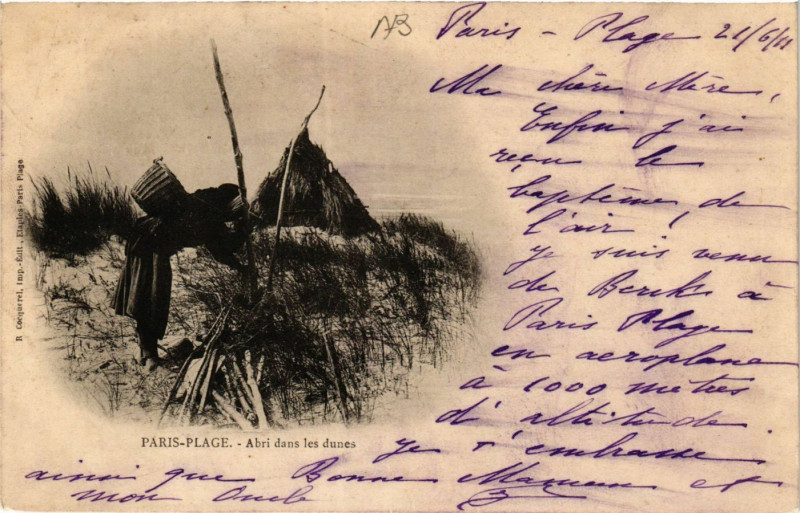 AB
Paris-Plage 21/6/11
Ma chère Mère,
Enfin j'ai
reçu le
baptême de
l'air !
je suis venu
de Berck à
Paris Plage
en aeroplane
à 1000 mètres
d'altitude.
je t'embrasse
ainsi que Bonne Maman et
mon Oncle
PARIS-PLAGE. - Abri dans les dunes
R Cocquerel, Imp.-Édit., Etaples-Paris Plage